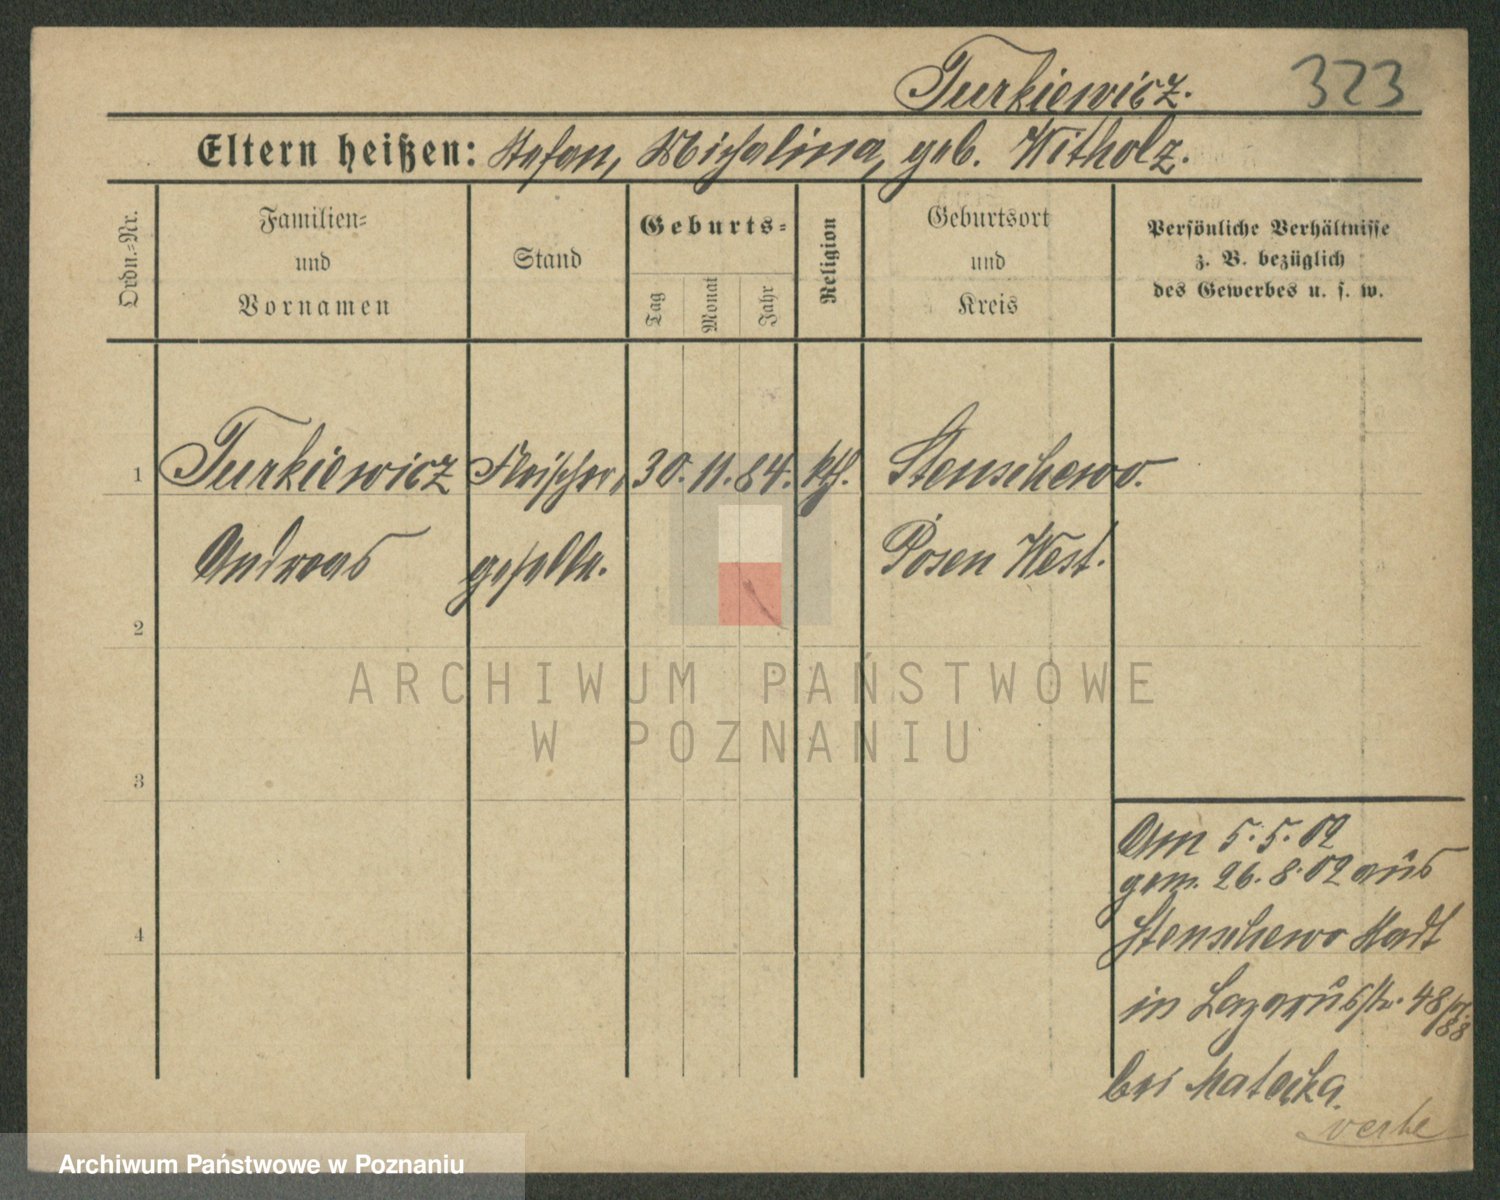 Turkiewicz. 323
Eltern heißen: Stefan, Michalina, geb. Witholz.
Ordn.-Nr.
Familien-
und
Vornamen
Stand
Geburts-
Tag
Monat
Jahr
Religion
Geburtsort
und
Kreis
Persönliche Verhältnisse
z. B. bezüglich
des Gewerbes u. s. w.
1 Turkiewicz Fleischer, 30. 11. 84. kth. Stenschewo.
Andreas geselle. Posen West.
2
ARCHIWUM PAŃSTWOWE
W POZNANIU
3
Am 5. 5. 02
gem. 26. 8. 02 aus
4
Stenschewo Stadt
in Lazarusstr. 48
bei Matecka.
Archiwum Państwowe w Poznaniu